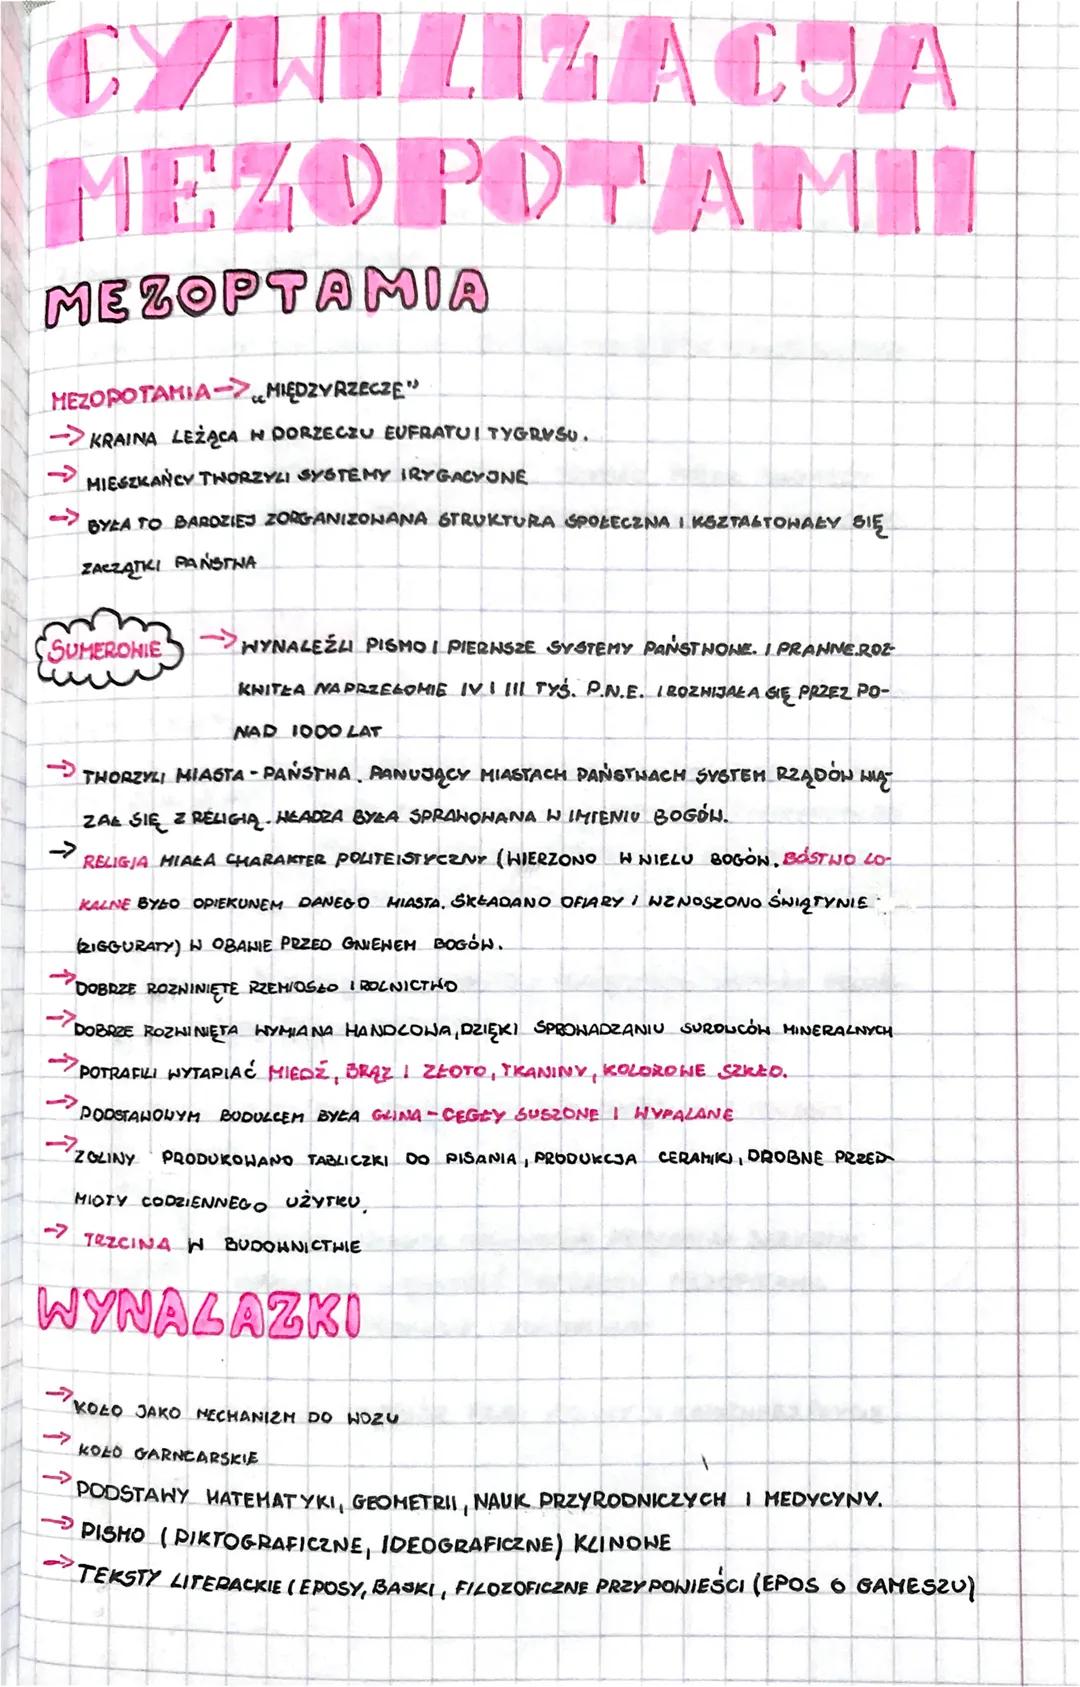 CYWILIZACJA
MEZOPOTAMII
MEZOPTAMIA
MEZOPOTAMIA → „MIĘDZYRZECZE"
→ KRAINA LEŻĄCA W DORZECZU EUFRATU I TYGRYSU.
→ MIESZKAŃCY TWORZYLI SYSTEMY IRYGACYJNE
→ BYŁA TO BARDZIEJ ZORGANIZOWANA STRUKTURA SPOŁECZNA I KSZTAŁTOWAŁY SIĘ
ZACZĄTKI PAŃSTWA
SUMEROWIE → WYNALEŹLI PISMO I PIERWSZE SYSTEMY PAŃSTWOWE. I PRAWNE. ROZ-
KWITŁA NA PRZEŁOMIE IV I III TYŚ. P.N.E. I ROZWIJAŁA SIĘ PRZEZ PO-
NAD 1000 LAT
→ TWORZYLI MIASTA-PAŃSTWA. PANUJĄCY MIASTACH PAŃSTWACH SYSTEM RZĄDÓW WIĄ-
ZAŁ SIĘ Z RELIGIĄ. WŁADZA BYŁA SPRAWOWANA W IMIENIU BOGÓW.
→ RELIGIA MIAŁA CHARAKTER POLITEISTYCZNY (WIERZONO W WIELU BOGÓW. BÓSTWO LO-
KALNE BYŁO OPIEKUNEM DANEGO MIASTA. SKŁADANO OFIARY I WZNOSZONO ŚWIĄTYNIE
(ZIGGURATY) W OBAWIE PRZED GNIEWEM BOGÓW.
→ DOBRZE ROZWINIĘTE RZEMIOSŁO I ROLNICTWO
→ DOBRZE ROZWINIĘTA WYMIANA HANDLOWA, DZIĘKI SPROWADZANIU SUROWCÓW MINERALNYCH
→ POTRAFILI WYTAPIAĆ MIEDŹ, BRĄZ I ZŁOTO, TKANINY, KOLOROWE SZKŁO.
→ PODSTAWOWYM BUDULCEM BYŁA GLINA - CEGŁY SUSZONE I WYPALANE
→ Z GLINY PRODUKOWANO TABLICZKI DO PISANIA, PRODUKCJA CERAMIKI, DROBNE PRZED-
MIOTY CODZIENNEGO UŻYTKU.
→ TRZCINA W BUDOWNICTWIE
WYNALAZKI
→ KOŁO JAKO MECHANIZM DO WOZU
→ KOŁO GARNCARSKIE
→ PODSTAWY MATEMATYKI, GEOMETRII, NAUK PRZYRODNICZYCH I MEDYCYNY.
→ PISMO (PIKTOGRAFICZNE, IDEOGRAFICZNE) KLINOWE
→ TEKSTY LITERACKIE (EPOSY, BAJKI, FILOZOFICZNE PRZYPOWIEŚCI (EPOS O GAMESZU)